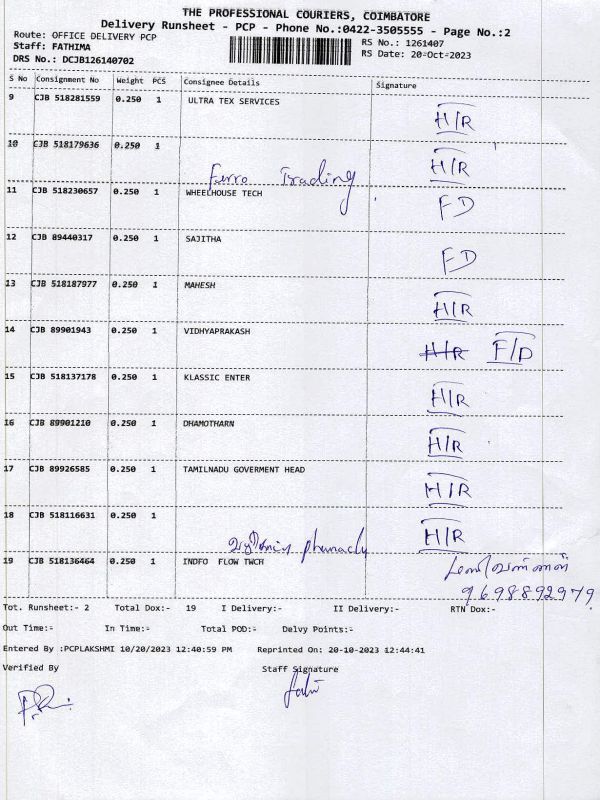 THE PROFESSIONAL COURIERS, COIMBATORE
Delivery Runsheet - PCP - Phone No.:0422-3505555 - Page No.:2
Route: OFFICE DELIVERY PCP RS No.: 1261407
Staff: FATHIMA RS Date: 20-Oct-2023
DRS No.: DCJB126140702
S No Consignment No Weight PCS Consignee Details Signature
9 CJB 518281559 0.250 1 ULTRA TEX SERVICES H/R
10 CJB 518179636 0.250 1 Ferro Trading H/R
11 CJB 518230657 0.250 1 WHEELHOUSE TECH FD
12 CJB 89440317 0.250 1 SAJITHA FD
13 CJB 518187977 0.250 1 MAHESH H/R
14 CJB 89901943 0.250 1 VIDHYAPRAKASH H/R F/D
15 CJB 518137178 0.250 1 KLASSIC ENTER H/R
16 CJB 89901210 0.250 1 DHAMOTHARN H/R
17 CJB 89926585 0.250 1 TAMILNADU GOVERMENT HEAD H/R
18 CJB 518116631 0.250 1 H/R
19 CJB 518136464 0.250 1 INDFO FLOW TWCH
9698892979
Tot. Runsheet:- 2 Total Dox:- 19 I Delivery:- II Delivery:- RTN Dox:-
Out Time:- In Time:- Total POD:- Delvy Points:-
Entered By :PCPLAKSHMI 10/20/2023 12:40:59 PM Reprinted On: 20-10-2023 12:44:41
Verified By Staff Signature